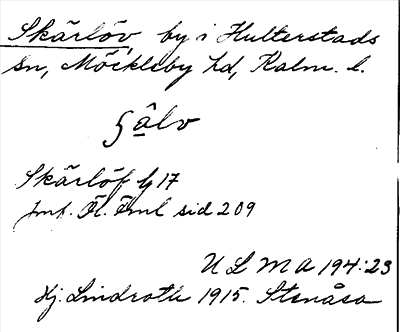 Skärlöv, by i Hulterstads
sn, Möckleby hd, Kalm. l.
Skärlöf hj 17
jmf. Öl. Fml sid 209
U L M A 194:23
Hj. Lindroth 1915. Stenåsa